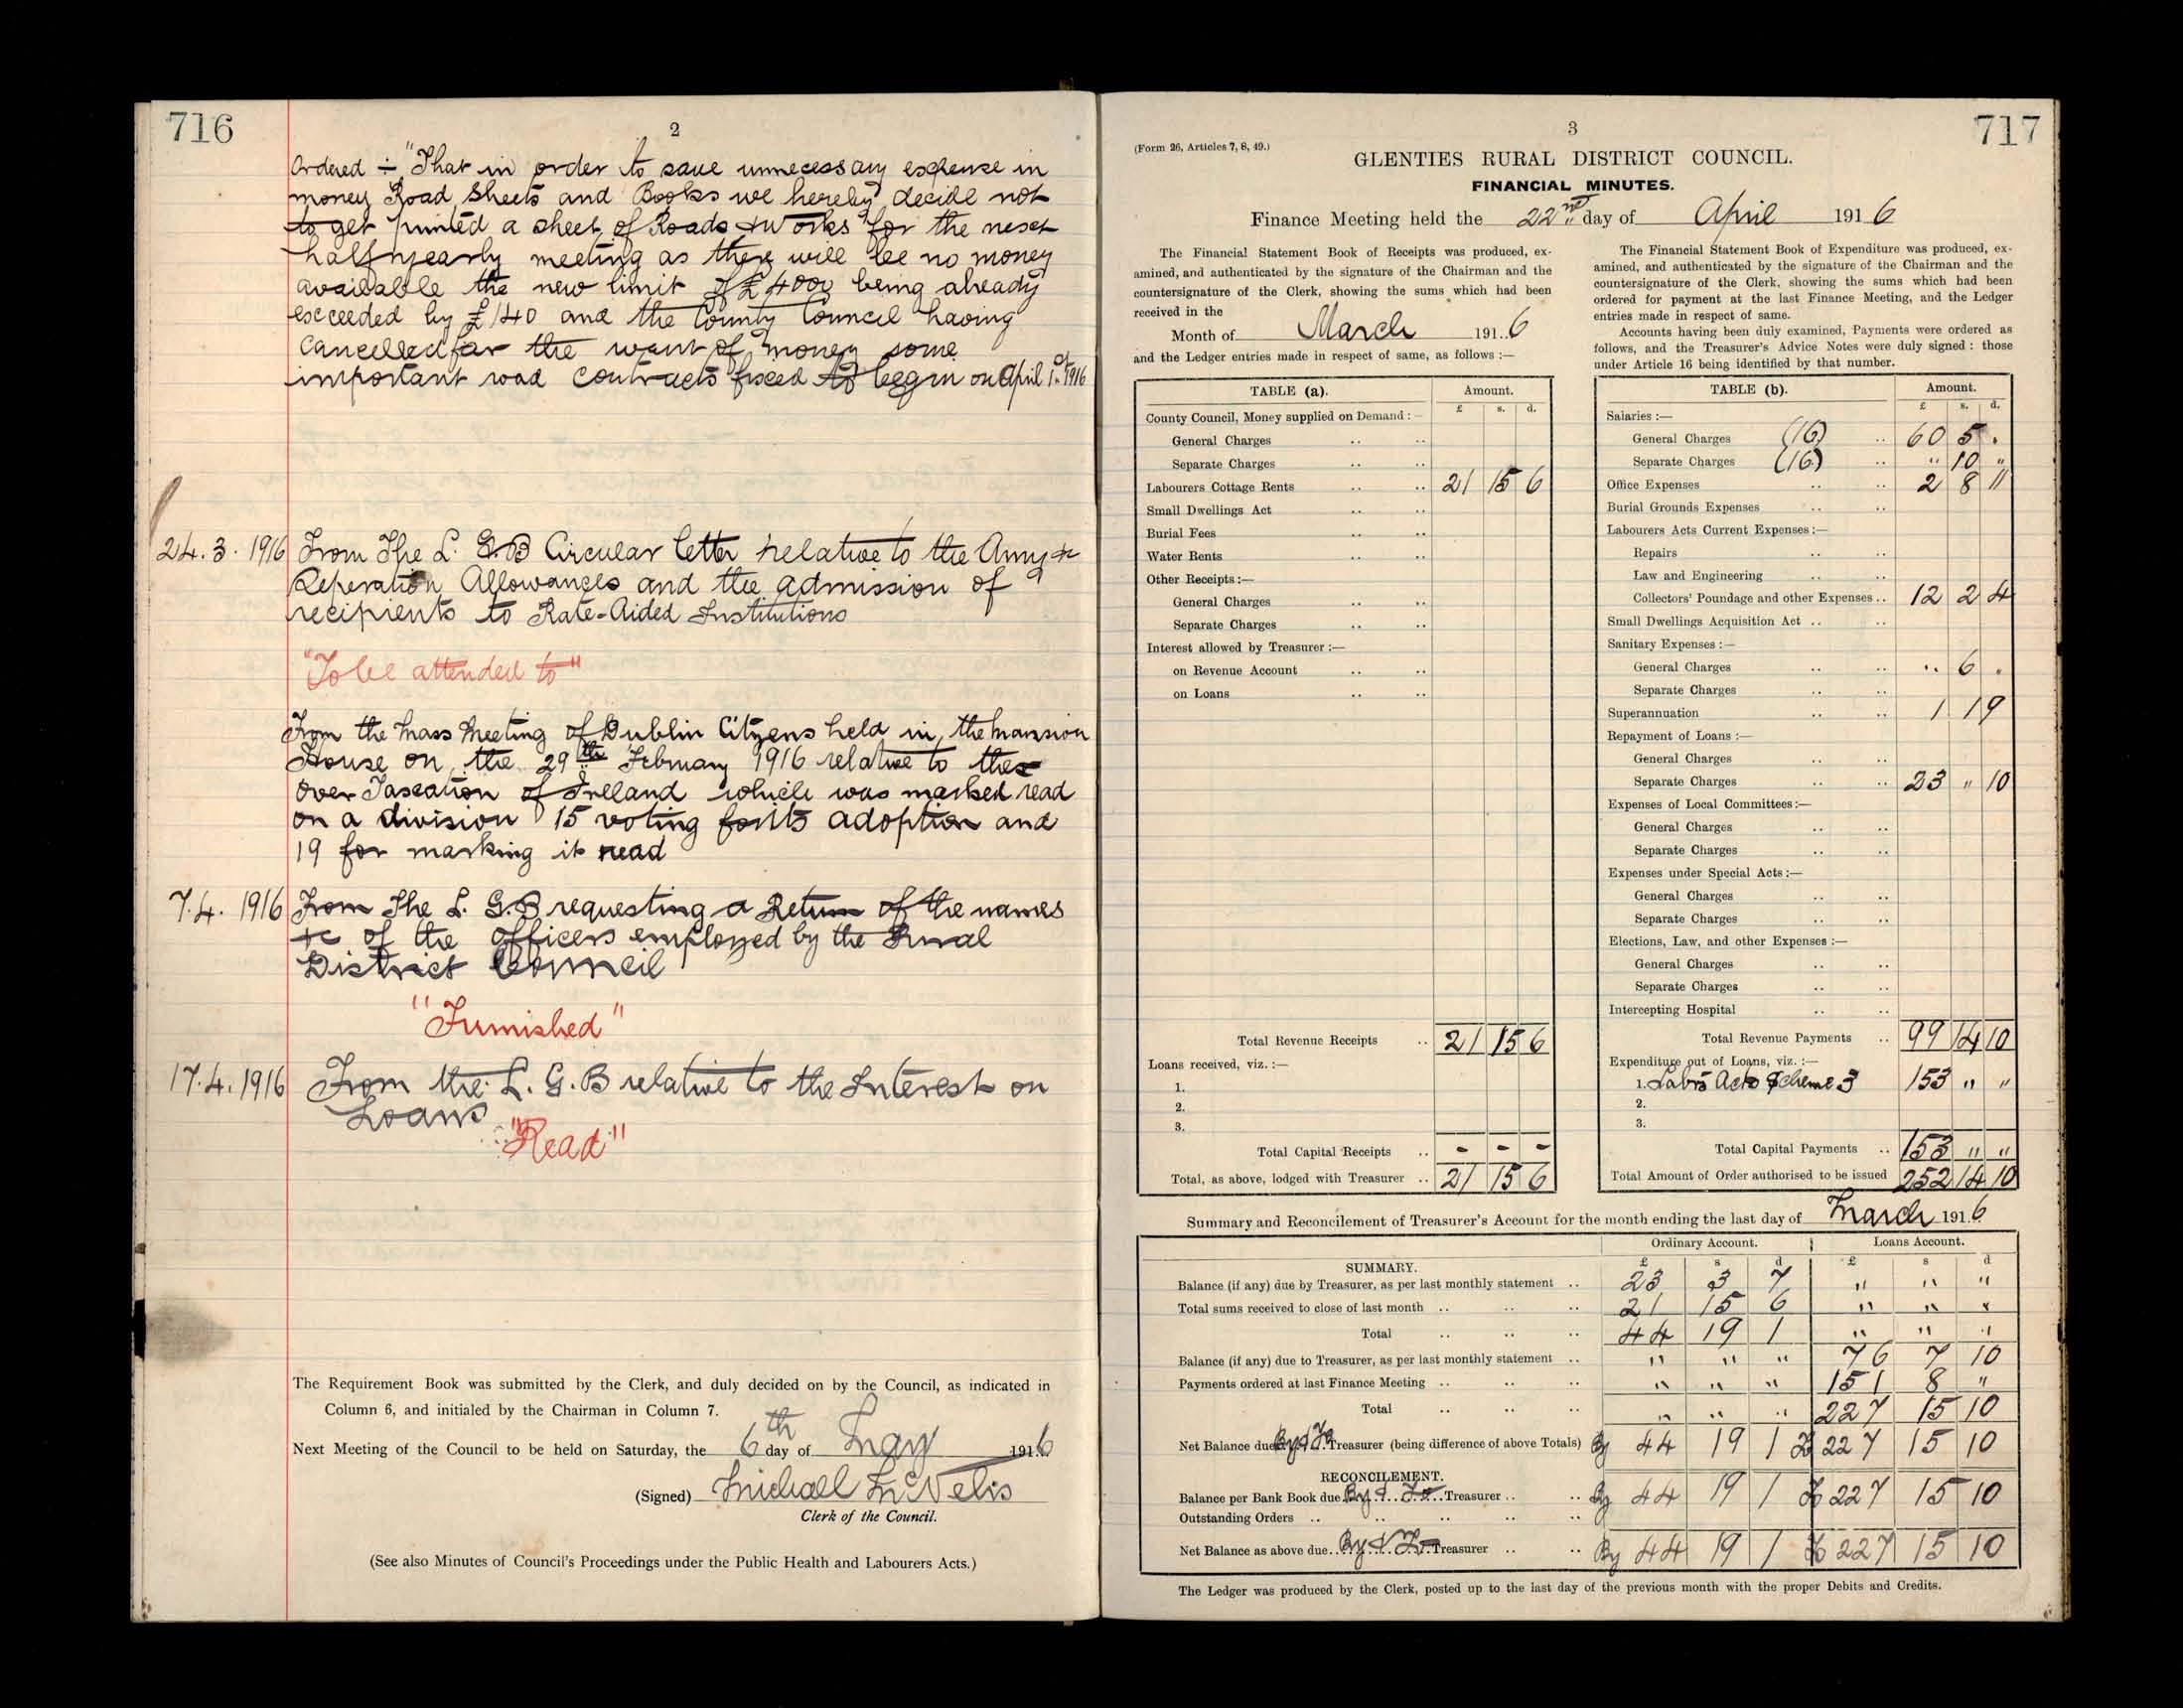 716
2
Ordered ÷ "That in order to save unnecessary expense in
money Road Sheets and Books we hereby decide not
to get printed a sheet of Roads & Works for the next
half yearly meeting as there will be no money
available the new limit of £4000 being already
exceeded by £140 and the County Council having
Cancelled for the want of money some
important road contracts fixed to begin on April 1st 1916
24.3.1916 From The L.G.B Circular letter relative to the Army &
Reperation Allowances and the admission of
recipients to Rate-Aided Institutions
"To be attended to"
From the Mass Meeting of Dublin Citizens held in the Mansion
House on the 29th February 1916 relative to the
Over Taxation of Ireland which was marked read
on a division 15 voting for its adoption and
19 for marking it read
7.4.1916 From The L.G.B requesting a Return of the names
&c of the officers employed by the Rural
District Council
"Furnished"
17.4.1916 From the L.G.B relative to the Interest on
Loans
"Read"
The Requirement Book was submitted by the Clerk, and duly decided on by the Council, as indicated in
Column 6, and initialed by the Chairman in Column 7.
Next Meeting of the Council to be held on Saturday, the 6th day of May 1916
(Signed) Michael McNelis
Clerk of the Council.
(See also Minutes of Council's Proceedings under the Public Health and Labourers Acts.)
3
717
(Form 26, Articles 7, 8, 49.)
GLENTIES RURAL DISTRICT COUNCIL.
FINANCIAL MINUTES.
Finance Meeting held the 22nd day of April 1916
The Financial Statement Book of Receipts was produced, ex-
amined, and authenticated by the signature of the Chairman and the
countersignature of the Clerk, showing the sums which had been
received in the
Month of March 191..6
and the Ledger entries made in respect of same, as follows :—
TABLE (a). Amount.
£ s. d.
County Council, Money supplied on Demand : —
General Charges .. ..
Separate Charges .. ..
Labourers Cottage Rents .. .. 21 15 6
Small Dwellings Act .. ..
Burial Fees .. ..
Water Rents .. ..
Other Receipts :—
General Charges .. ..
Separate Charges .. ..
Interest allowed by Treasurer :—
on Revenue Account .. ..
on Loans .. ..
Total Revenue Receipts .. 21 15 6
Loans received, viz. :—
1.
2.
3.
Total Capital Receipts .. - - -
Total, as above, lodged with Treasurer .. 21 15 6
The Financial Statement Book of Expenditure was produced, ex-
amined, and authenticated by the signature of the Chairman and the
countersignature of the Clerk, showing the sums which had been
ordered for payment at the last Finance Meeting, and the Ledger
entries made in respect of same.
Accounts having been duly examined, Payments were ordered as
follows, and the Treasurer's Advice Notes were duly signed : those
under Article 16 being identified by that number.
TABLE (b). Amount.
£ s. d.
Salaries :—
General Charges (16) .. 60 5 .
Separate Charges (16) .. " 10 "
Office Expenses .. .. 2 8 11
Burial Grounds Expenses .. ..
Labourers Acts Current Expenses :—
Repairs .. ..
Law and Engineering .. ..
Collectors' Poundage and other Expenses .. 12 2 4
Small Dwellings Acquisition Act .. ..
Sanitary Expenses :—
General Charges .. .. " 6 .
Separate Charges .. ..
Superannuation .. .. 1 19
Repayment of Loans :—
General Charges .. ..
Separate Charges .. .. 23 " 10
Expenses of Local Committees :—
General Charges .. ..
Separate Charges .. ..
Expenses under Special Acts :—
General Charges .. ..
Separate Charges .. ..
Elections, Law, and other Expenses :—
General Charges .. ..
Separate Charges .. ..
Intercepting Hospital .. ..
Total Revenue Payments .. 99 14 10
Expenditure out of Loans, viz. :—
1. Labrs Acts Scheme 3 153 " "
2.
3.
Total Capital Payments .. 153 " "
Total Amount of Order authorised to be issued 252 14 10
Summary and Reconcilement of Treasurer's Account for the month ending the last day of March 1916
Ordinary Account. Loans Account.
£ s d £ s d
SUMMARY.
Balance (if any) due by Treasurer, as per last monthly statement .. 23 3 7 " " "
Total sums received to close of last month .. .. .. 21 15 6 " " "
Total .. .. .. 44 19 1 " " "
Balance (if any) due to Treasurer, as per last monthly statement .. " " " 76 7 10
Payments ordered at last Finance Meeting .. .. .. " " " 151 8 "
Total .. .. .. " " " 227 15 10
Net Balance due By & To Treasurer (being difference of above Totals) By 44 19 1 To 227 15 10
RECONCILEMENT.
Balance per Bank Book due By & To Treasurer .. .. By 44 19 1 To 227 15 10
Outstanding Orders .. .. .. .. ..
Net Balance as above due By & To Treasurer .. .. By 44 19 1 To 227 15 10
The Ledger was produced by the Clerk, posted up to the last day of the previous month with the proper Debits and Credits.